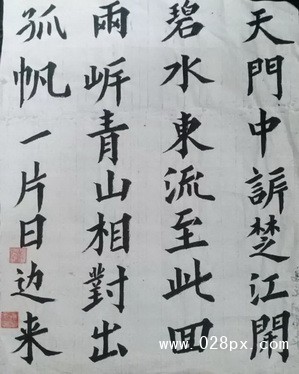 天門中訴楚江開
碧水東流至此回
兩岍青山相對出
孤帆一片日边来
www.028px.com